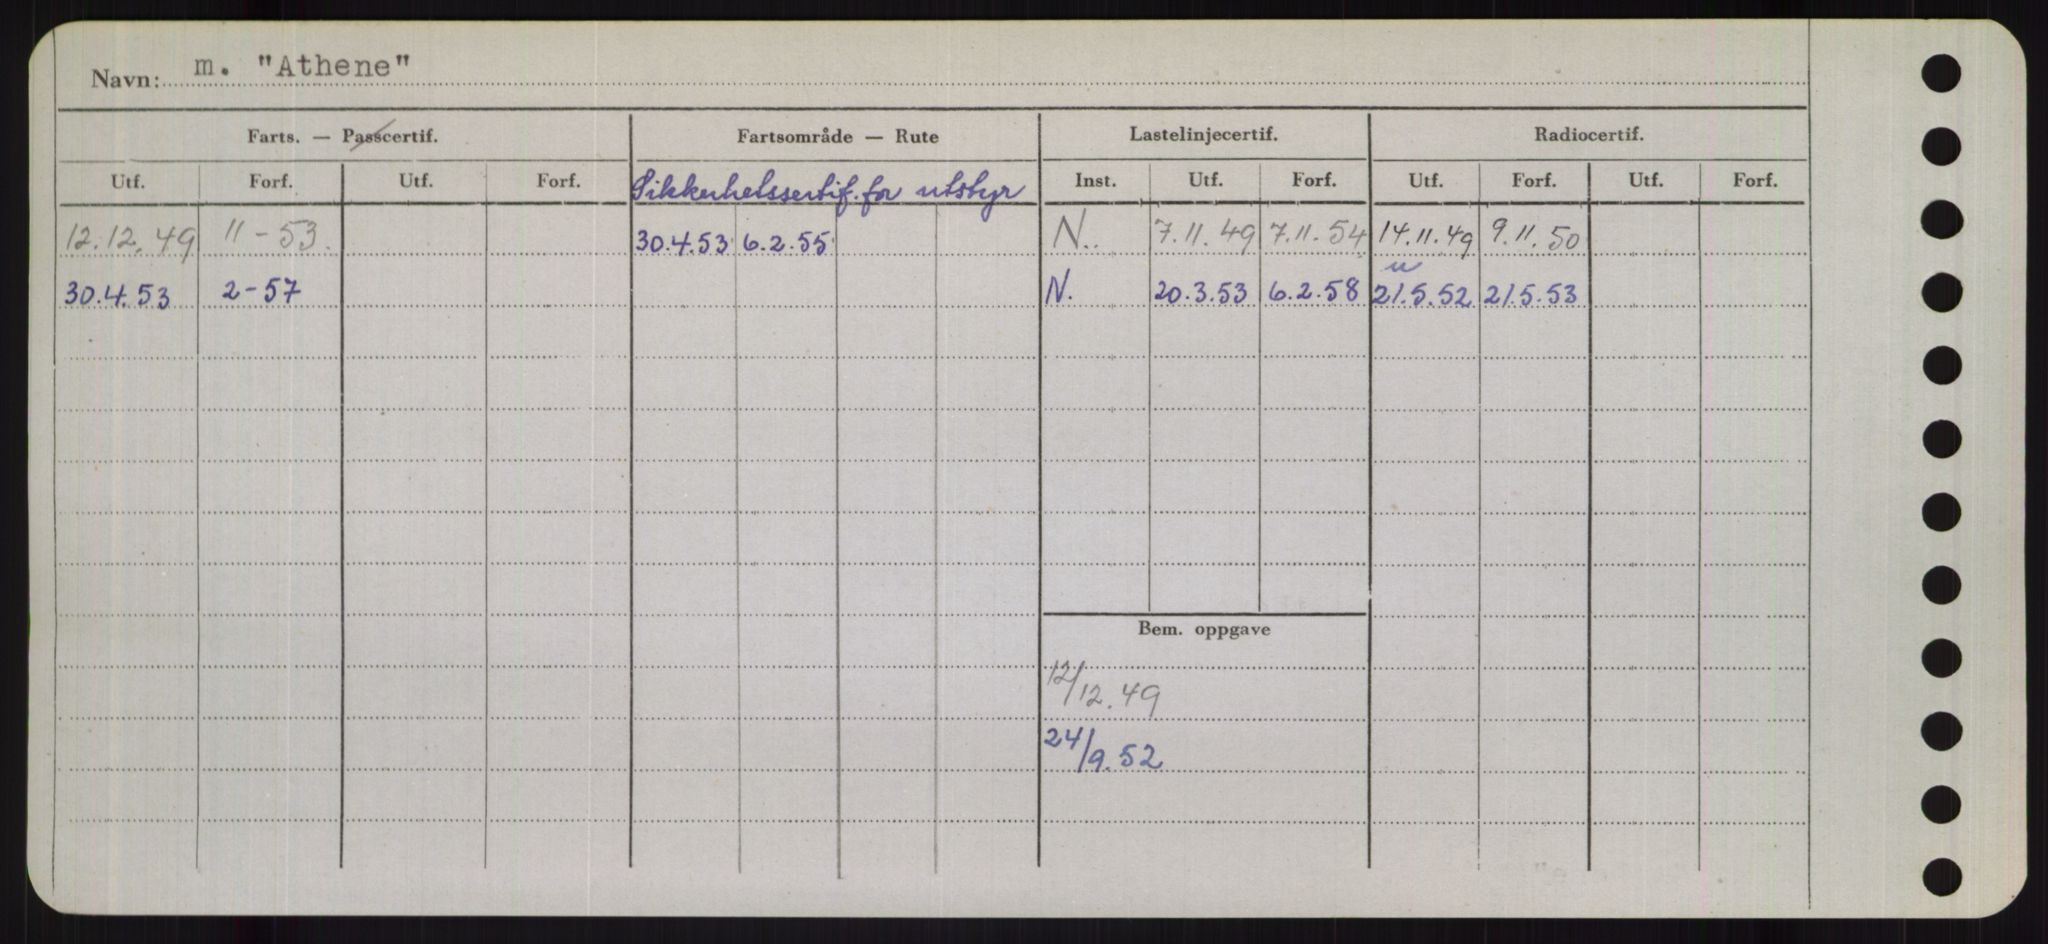 Navn: m. "Athene"
Farts. — Passcertif. Fartsområde — Rute Lastelinjecertif. Radiocertif.
Utf. Forf. Utf. Forf. Sikkerhetssertif. for utstyr Inst. Utf. Forf. Utf. Forf. Utf. Forf.
12.12.49 11-53. 30.4.53 6.2.55 N.. 7.11.49 7.11.54 14.11.49 9.11.50
30.4.53 2-57 N. 20.3.53 6.2.58 21.5.52 21.5.53
Bem. oppgave
12/12.49
24/9.52